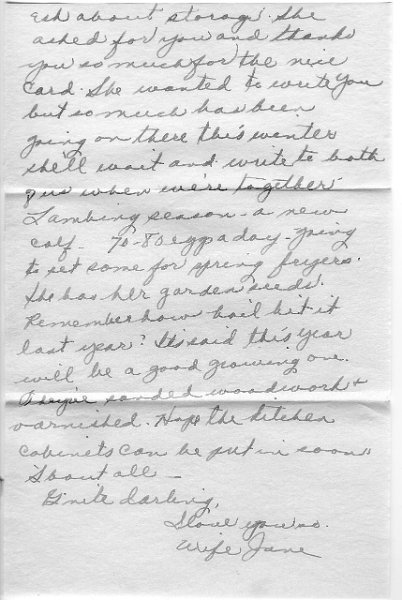 ask about storage. She
asked for you and thanks
you so much for the nice
card. She wanted to write you
but so much has been
going on there this winter
she'll wait and write to both
of us when we're together.
Lambing season - a new
calf - 70-80 eggs a day - going
to set some for spring fryers.
She has her garden seeds.
Remember how hail hit it
last year? It's said this year
will be a good growing one.
They've sanded woodwork +
varnished. Hope the kitchen
cabinets can be put in soon.
'Bout all -
G'nite darling,
I love you so.
Wife Jane